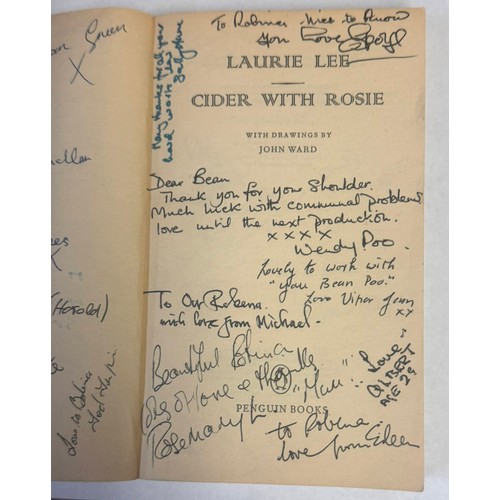 Green
X
(Harold)
Love to Robina
Many thanks for all your
hard work
To Robina nice to know
you love
LAURIE LEE
CIDER WITH ROSIE
WITH DRAWINGS BY
JOHN WARD
Dear Bean
Thank you for your Shoulder.
Much luck with communal problems
love until the next production.
x x x x
Wendy Poo.
Lovely to work with
"you Bean Poo."
Love Viper
xy
To Our Robena.
with love from Michael -
Beautiful Robina
love & thanks
Rosemary
"Mum"
Love
ALBERT
AGE 29
PENGUIN BOOKS
to Robina
love from Eileen